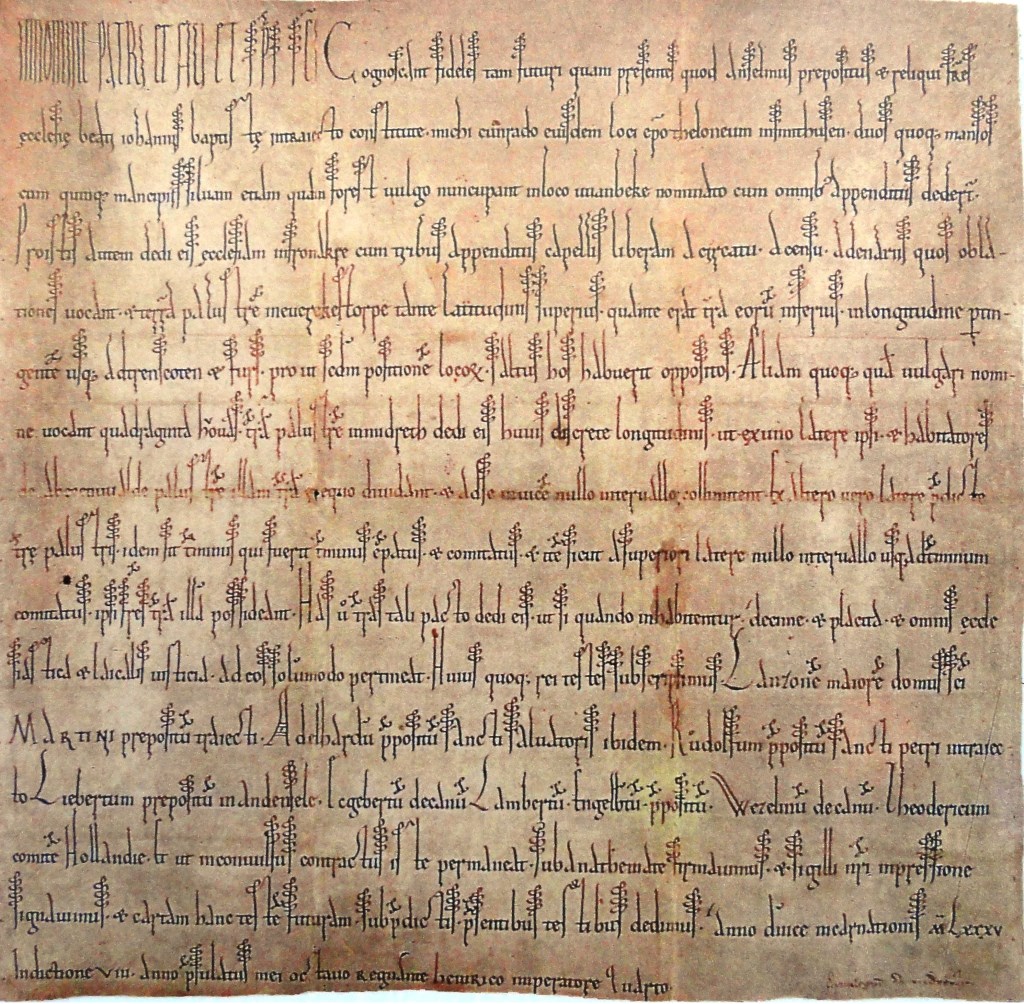 IN NOMINE PATRIS ET FILII ET SP̄S S̄CI Cognoscant fideles tam futuri quam presentes quod anselmus prepositus & reliqui fr̄es
ęcclesię beati iohannis baptistę intraiecto constitute. michi cunrado eiusdem loci ep̄o theloneum insmithusen. duos quoq; mansos
cum quinq; mancipiis siluam etiam quam forest uulgo nuncupant inloco uuanbeke nominato cum omnib; appenditiis deder̄t.
Pro istis autem dedi eis ęcclesiam insronakre cum tribus appenditiis capellis liberam acircatu. acensu. adenariis quos obla-
tiones uocant. & terrā palustrē ineuerkestorpe tante latitudinis superius. quante erat tr̄a eorū inferius. inlongitudine ptin-
gentē usq; adtrenscoten & furs. prout sc̄dm positionē locorū. saltus hos habuerit oppositos. Aliam quoq; quā uulgari nomi-
ne uocant quadraginta hōuas. tr̄ā palustrē inmidreth dedi eis huius discrete longitudinis. ut exuno latere ipsi. & habitatores
de palustrē illam tr̄ā exequo diuidant. & adse inuicē nullo interuallo collimitent. Ex altero uero latere p̄dictę
tr̄ę palustris. idem sit t̄minus qui fuerit t̄minus ep̄atus. & comitatus. & ita sicut asuperiori latere nullo interuallo usq; adt̄minum
comitatus. ipsi fr̄es tr̄ā illā possideant. Has ů tr̄as tali pacto dedi eis. ut si quando inhabitentur. decime. & placita. & omnis ęccle
siastica & laicalis iusticia. ad eos solummodo pertineat. Huius quoq; rei testes subscripsimus. Lanzonē maiorē domus sc̄i
MARTINI prepositū traiecti. Adelhardū p̄positū sancti saluatoris ibidem. Růdolfum p̄positū sancti petri intraiec-
to Liebertum prepositū indauentrele. Icgebertū decanū Lambertū. Engelbtū. p̄positū. Wezelinū decanū. Theodericum
comitē Hollandie. Et ut inconuulsus contractus iste permaneat. sub anathemate firmauimus. & sigilli nr̄i inpressione
signauimus. & cartam hanc testē futuram. subp̄dictis. p̄sentibus testibus dedimus. Anno dn̄icę incarnationis M̄LXXXV
Indictione VIII. anno p̄sulatus mei octauo regnante heinrico imperatore quarto.